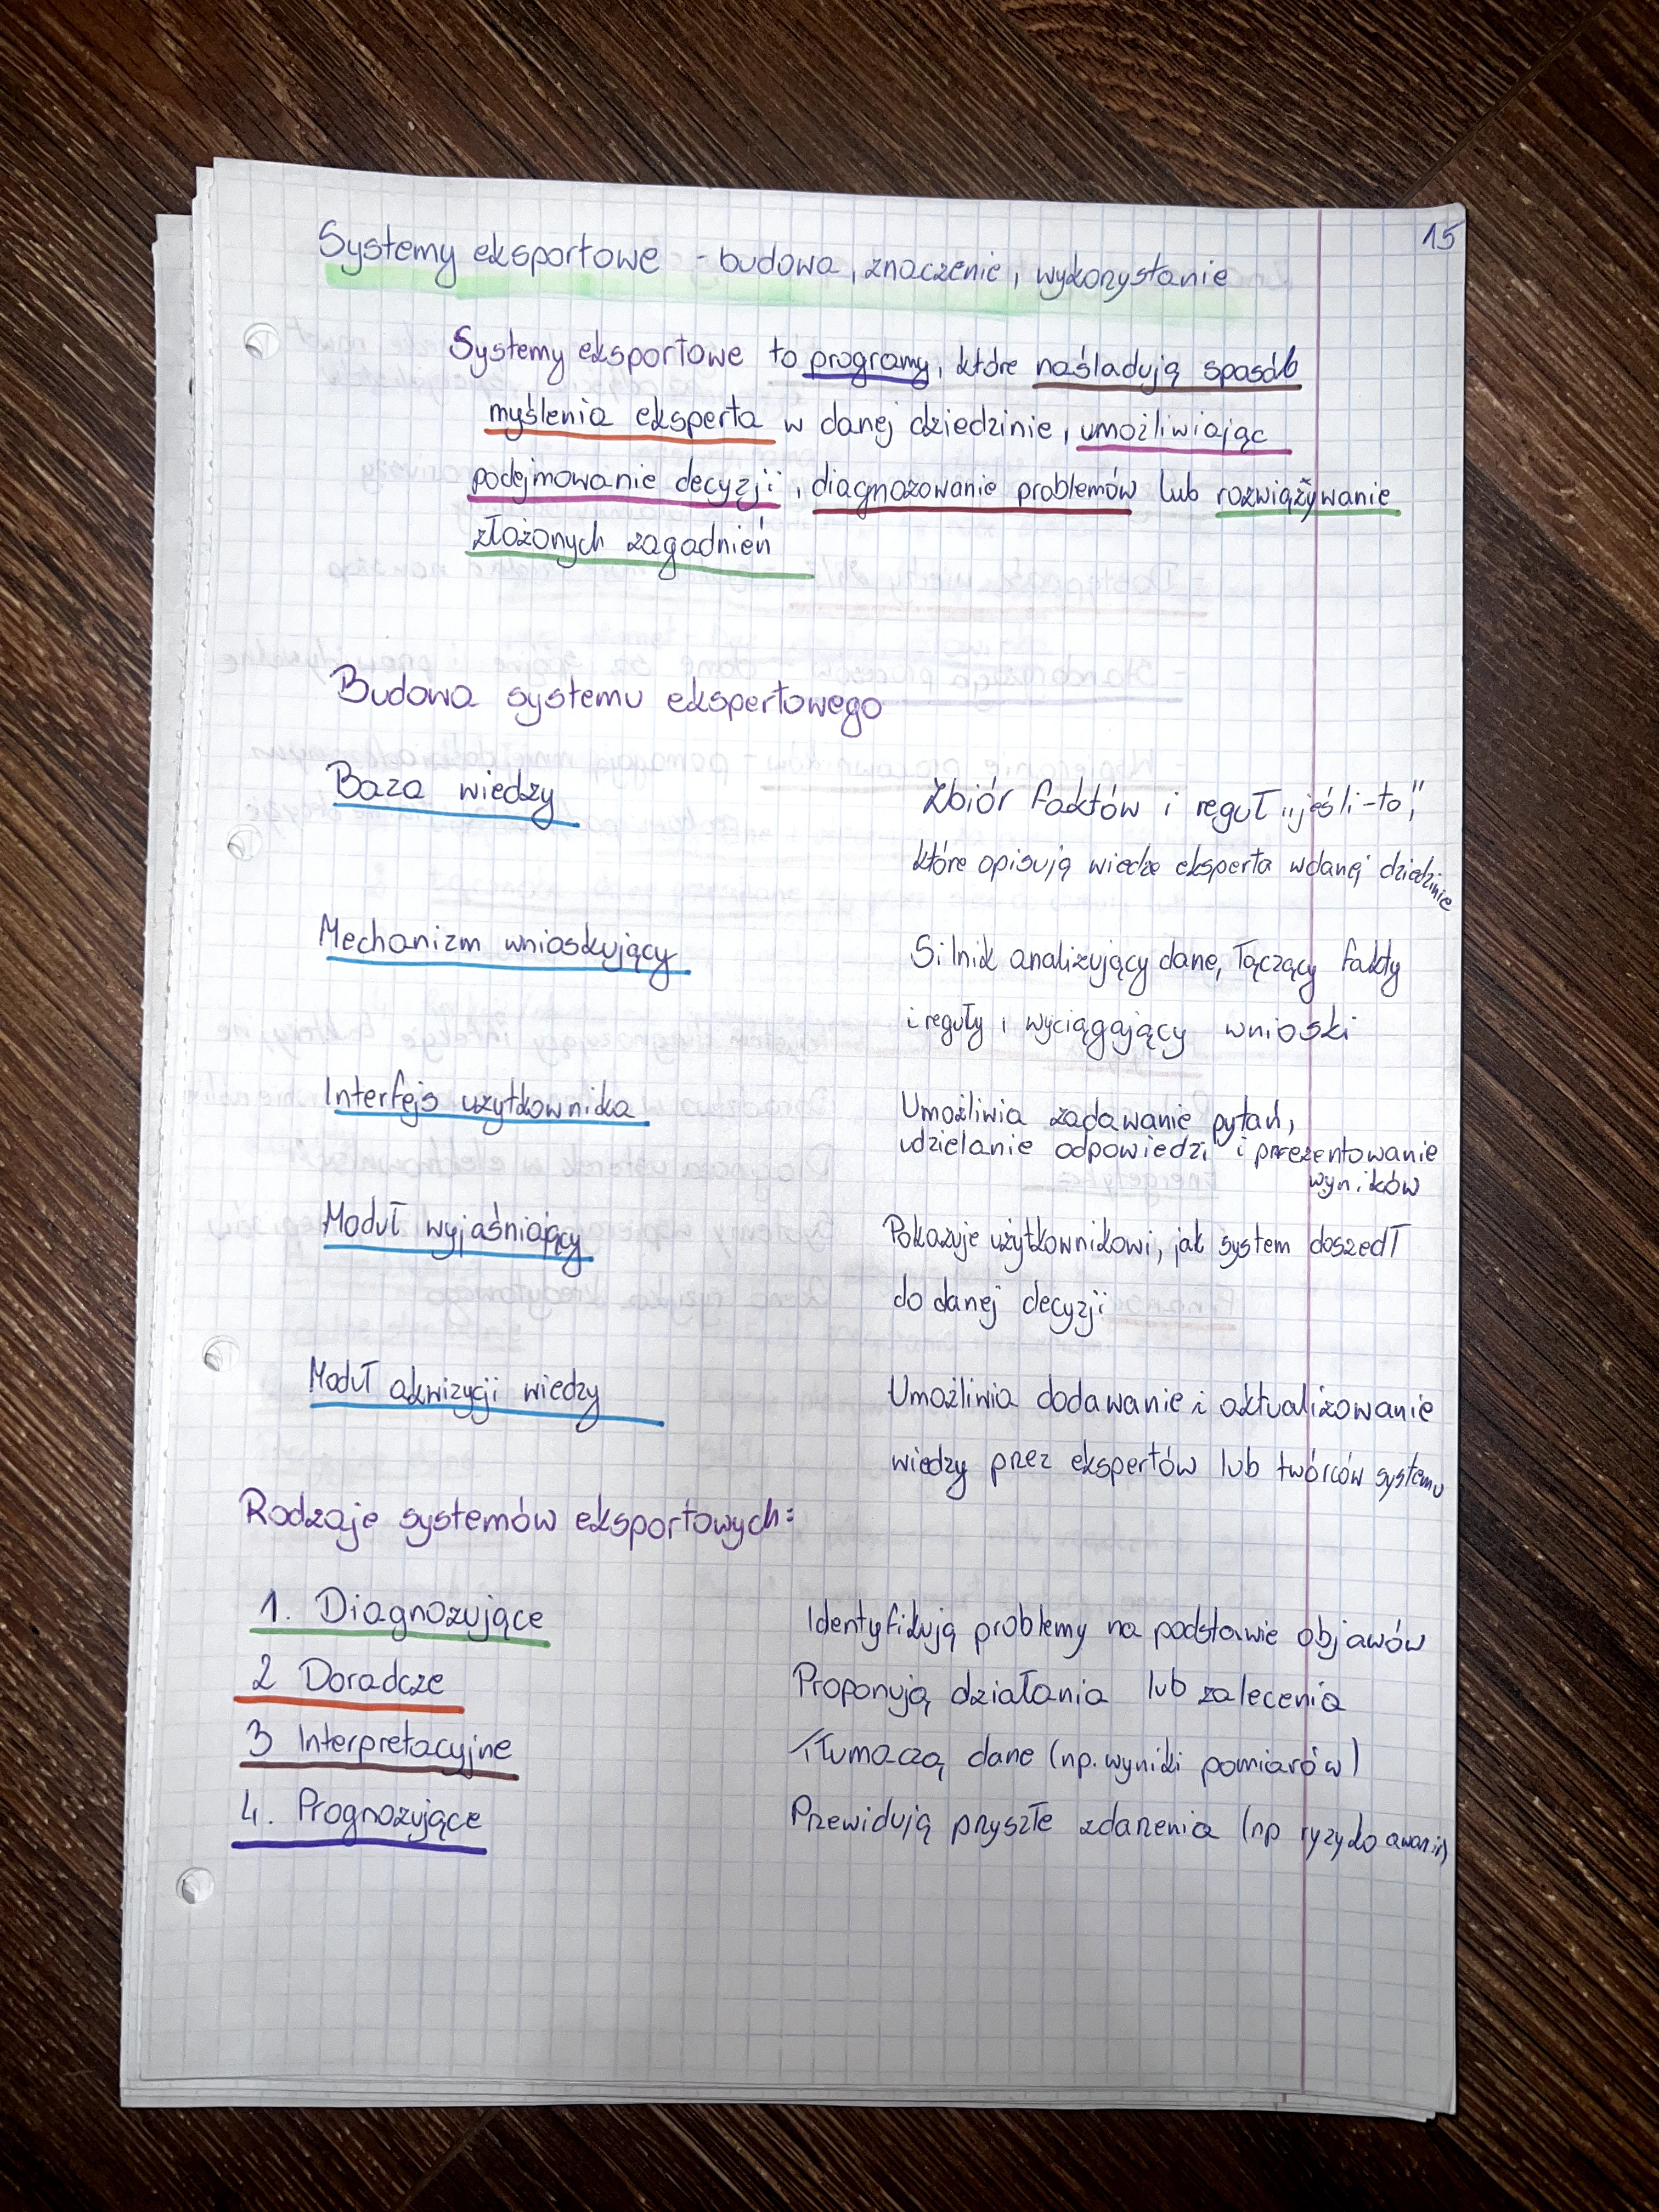 15
Systemy eksportowe - budowa, znaczenie, wykorzystanie
Systemy eksportowe to programy, które naśladują sposób
myślenia eksperta w danej dziedzinie, umożliwiając
podejmowanie decyzji, diagnozowanie problemów lub rozwiązżywanie
złożonych zagadnień
Budowa systemu ekspertowego
Baza wiedzy
Zbiór faktów i reguł „jeśli-to",
które opisują wiedze eksperta w danej dziedzinie
Mechanizm wnioskujący
Silnik analizujący dane, łączący fakty
i reguły i wyciągający wnioski
Interfejs użytkownika
Umożliwia zadawanie pytań,
udzielanie odpowiedzi i prezentowanie
wyników
Moduł wyjaśniający
Pokazuje użytkownikowi, jak system doszedł
do danej decyzji
Moduł akwizycji wiedzy
Umożliwia dodawanie i aktualizowanie
wiedzy przez ekspertów lub twórców systemu
Rodzaje systemów eksportowych:
1. Diagnozujące
Identyfikują problemy na podstawie objawów
2 Doradcze
Proponują działania lub zalecenia
3 Interpretacyjne
Tłumaczą dane (np. wyniki pomiarów)
4. Prognozujące
Przewidują przyszłe zdarzenia (np ryzyko awarii)